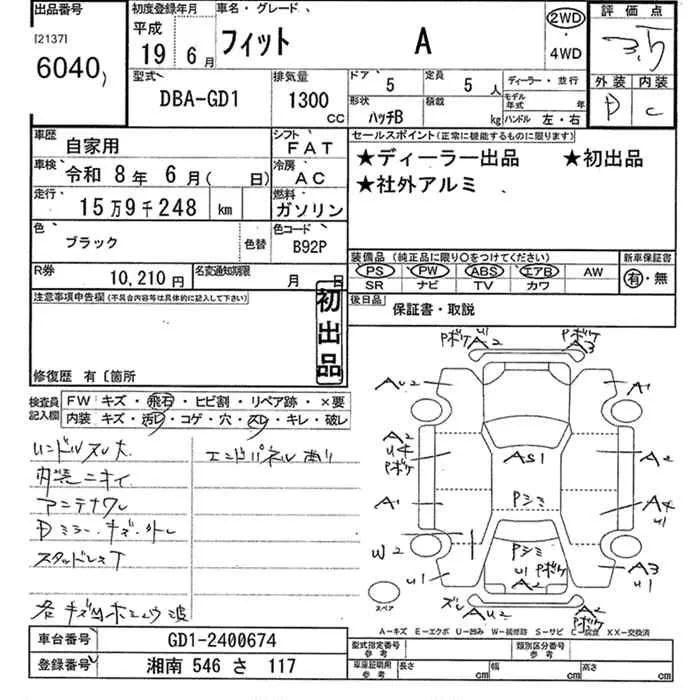 出品番号
[2137]
6040
初度登録年月
平成
19年 6月
車名・グレード
フィット A
2WD
・
4WD
評価点
3.5
外装 内装
D C
型式
DBA-GD1
排気量
1300
CC
ドア 5
定員 5 人
形状 ハッチB
積載 kg
ディーラー・並行
モデル年式 年
ハンドル 左・右
車歴
自家用
シフト
FAT
車検
令和 8年 6月( 日)
冷房
AC
走行
15万9千248 km
燃料
ガソリン
色
ブラック
色替
色コード
B92P
R券
10,210円
名変通知期限
月 日
セールスポイント(正常に機能するものに限ります)
★ディーラー出品 ★初出品
★社外アルミ
装備品 (純正品に限り○をつけてください)
新車保証書
PS PW ABS エアB AW
有・無
SR ナビ TV カワ
後日品
保証書・取説
注意事項申告欄(不具合内容等は具体的に記入して下さい)
初出品
修復歴 有〔箇所
検査員記入欄
FW キズ・飛石・ヒビ割・リペア跡・×要
内装 キズ・汚レ・コゲ・穴・スレ・キレ・破レ
ハンドルスレ大
エンドパネルあり
内装ニオイ
アンテナワレ
Dミラー・キズ・外レ
スタッドレスT
各キズ凹ホコリ波
U1
Pボケ A2
Pボケ
A3
AU2
A1
A2
Uキ
Pボケ
AS1
A2
A1
Pシミ
A4
U1
W2
Pシミ
U1 Pボケ
A2
U1
A3
U1
スペア
ズレ AU2
A2
Pボケ
A－キズ E－エクボ U－凹み W－補修跡 S－サビ C－腐食 XX－交換済
車台番号
GD1-2400674
登録番号
湘南 546 さ 117
型式指定番号
参考
類別区分番号
参考
車庫証明用
参考
長さ cm
幅 cm
高さ cm